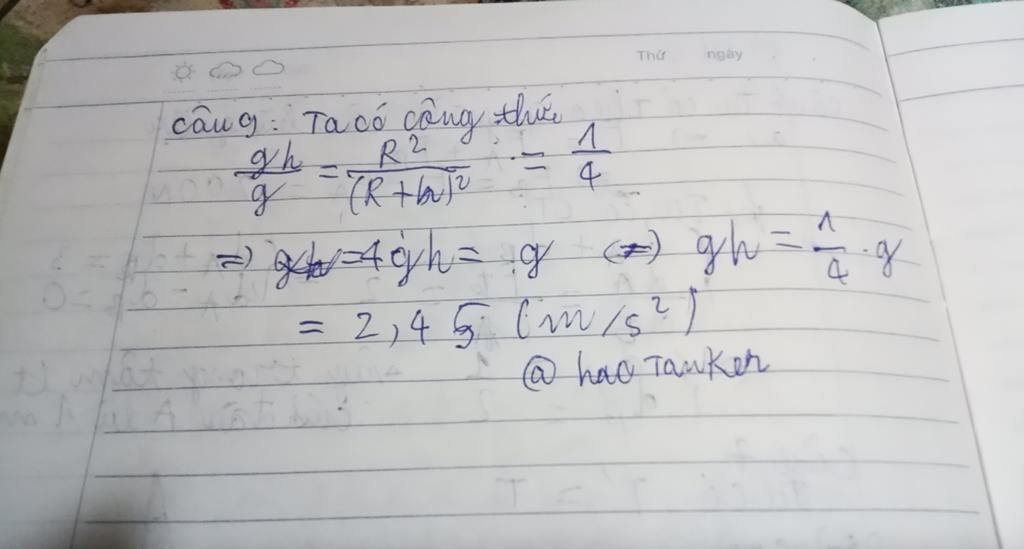 Thứ ngày
Câu 9: Ta có công thức
gh/g = R²/(R+h)² = 1/4
=> 4gh = g (=) gh = 1/4 . g
= 2,45 (m/s²)
@ haoTanker